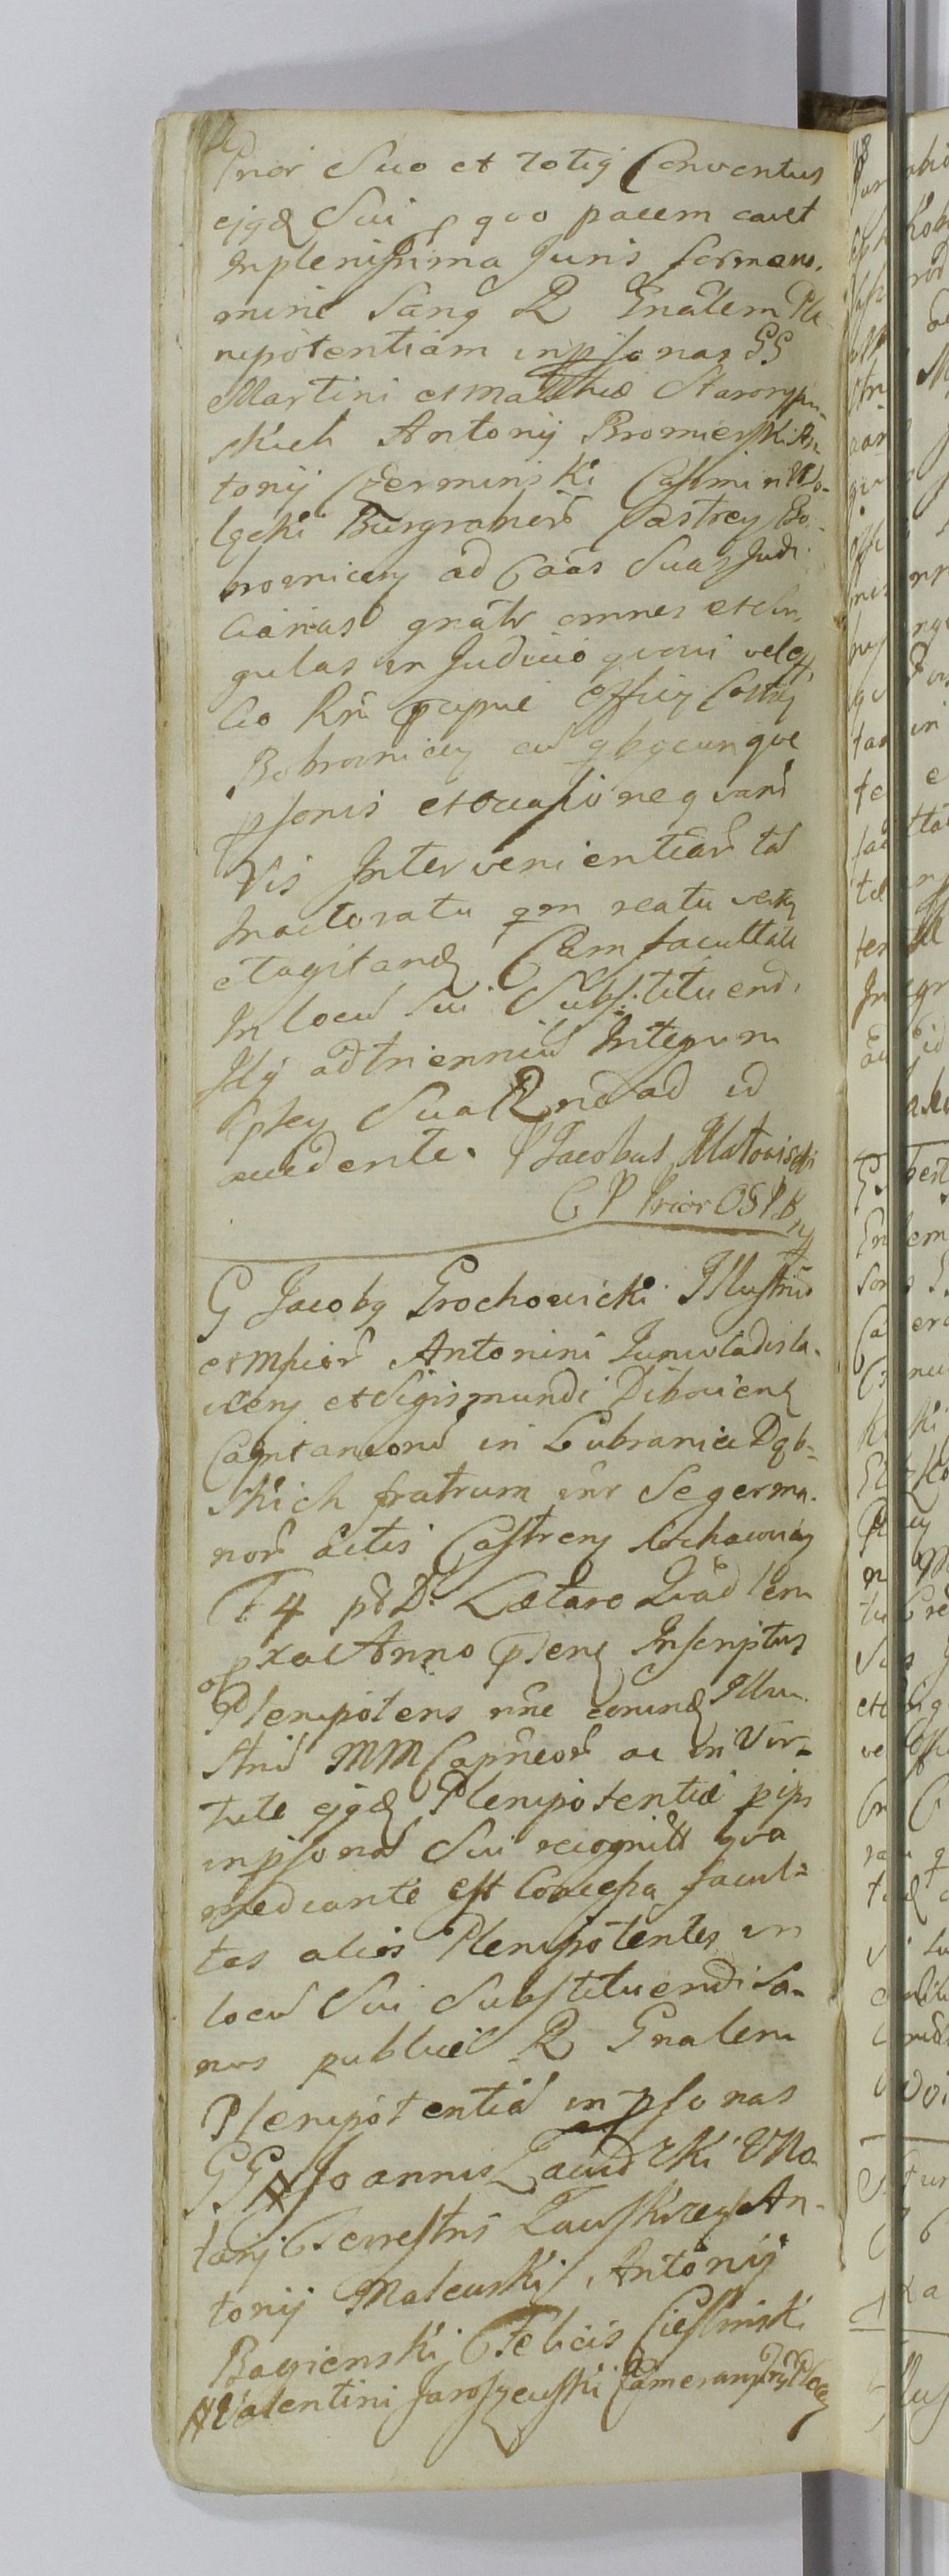 Prior Suo et totig Conventus
ejgd Sui p quo pacem cavet
Inplenissima Juris forma no-
mine Sano R Gnalem Ple-
nipotentiam inpsonas GG
Martini et Mathiæ Starorypi-
skich Antonij Bromierski An-
tonij Czerminski Casimiri Wo-
lęcki Burgrabior Castren Bo-
brovnicen ad Caās Suas Judi-
ciarias gnatr omnes et Sin-
gulas in Judicio quovis vel off
cio Rni pcipue Officij Castren
Bobrovnicen cu qbgcunque
psonis et occasione quarū
vis Intervenientiarū tā
Inactoratu qm reatu vertn
et agitand Cum facultate
In locū Sui Substituendi
Idq ad trienniū Integrum
Sua R no ad id
accedente. P Jacobus Matowiski
C P Prior OSPB
G Jacobg Grochowicki Illustriū
et Mficor Antonini Juniwladisla-
vien et Sigismundi Diboviens
Capitaneorū in Lubraniec Dąb-
skich fratrum inr Se germa-
nor actis Castren
F 4 pō D. Lætare Quadlem
pxa Anno psens Inscriptus
Plenipotens nne eorund Illu-
striū MM Capneor ac in Vir-
tute ejgd Plenipotentiæ pips
inpsonā Sui recognitæ qva
mediante est Concessa facul-
tas alios Plenipotentes in
locū Sui Substituendi Sa-
nus publice R Gnalem
Plenipotentiā inpsonas
GG Joannis Zawidzki VNo-
tarij Terrestris Zawskrzen An-
tonij Malewski, Antonij
Bagienski, Felicis Cieslinski
Valentini Jaroszewski